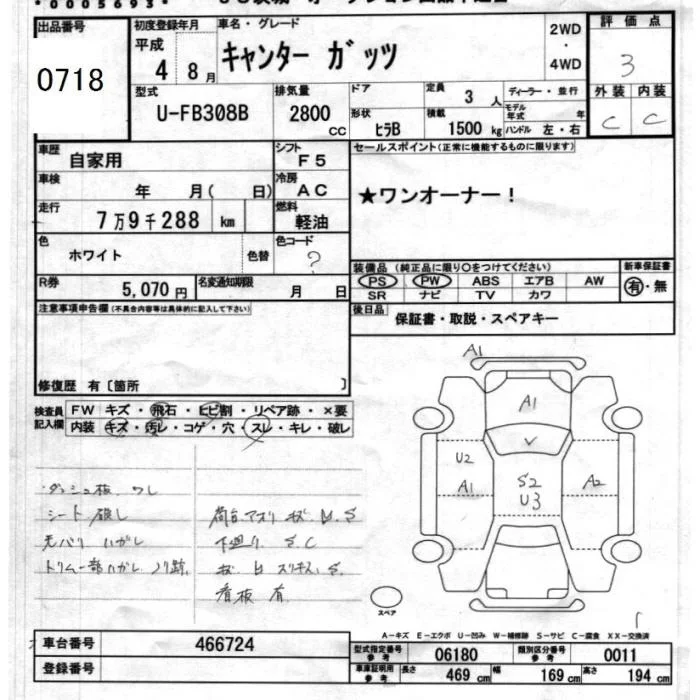 *0005693*
出品番号
0718
初度登録年月
平成 4年 8月
車名・グレード
キャンター ガッツ
2WD
・
4WD
評価点
3
型式
U-FB308B
排気量
2800 cc
ドア
形状
ヒラB
定員
3人
積載
1500kg
ディーラー・並行
モデル年式 年
ハンドル 左・右
外装 内装
C C
車歴
自家用
シフト
F5
セールスポイント(正常に機能するものに限ります)
★ワンオーナー!
車検
年 月( 日)
冷房
AC
走行
7万9千288 km
燃料
軽油
色
ホワイト
色替
色コード
?
装備品(純正品に限り○をつけてください)
PS PW ABS エアB AW
SR ナビ TV カワ
新車保証書
有・無
R券
5,070円
名変通知期限
月 日
後日品
保証書・取説・スペアキー
注意事項申告欄(不具合内容等は具体的に記入して下さい)
修復歴 有〔箇所 〕
検査員記入欄
FW キズ・飛石・ヒビ割・リペア跡・×要
内装 キズ・汚レ・コゲ・穴・スレ・キレ・破レ
ダッシュ板、ワレ
シート破レ
天バリ ハガレ
トリム一部ハガレ、ノリ跡
荷台アオリ
下廻り S.C
看板 有
A1
A1
U2
A1
S2
U3
A2
スペア
A-キズ E-エクボ U-凹み W-補修跡 S-サビ C-腐食 XX-交換済
車台番号
466724
登録番号
型式指定番号 参考
06180
類別区分番号 参考
0011
車庫証明用 参考
長さ 469 cm
幅 169 cm
高さ 194 cm